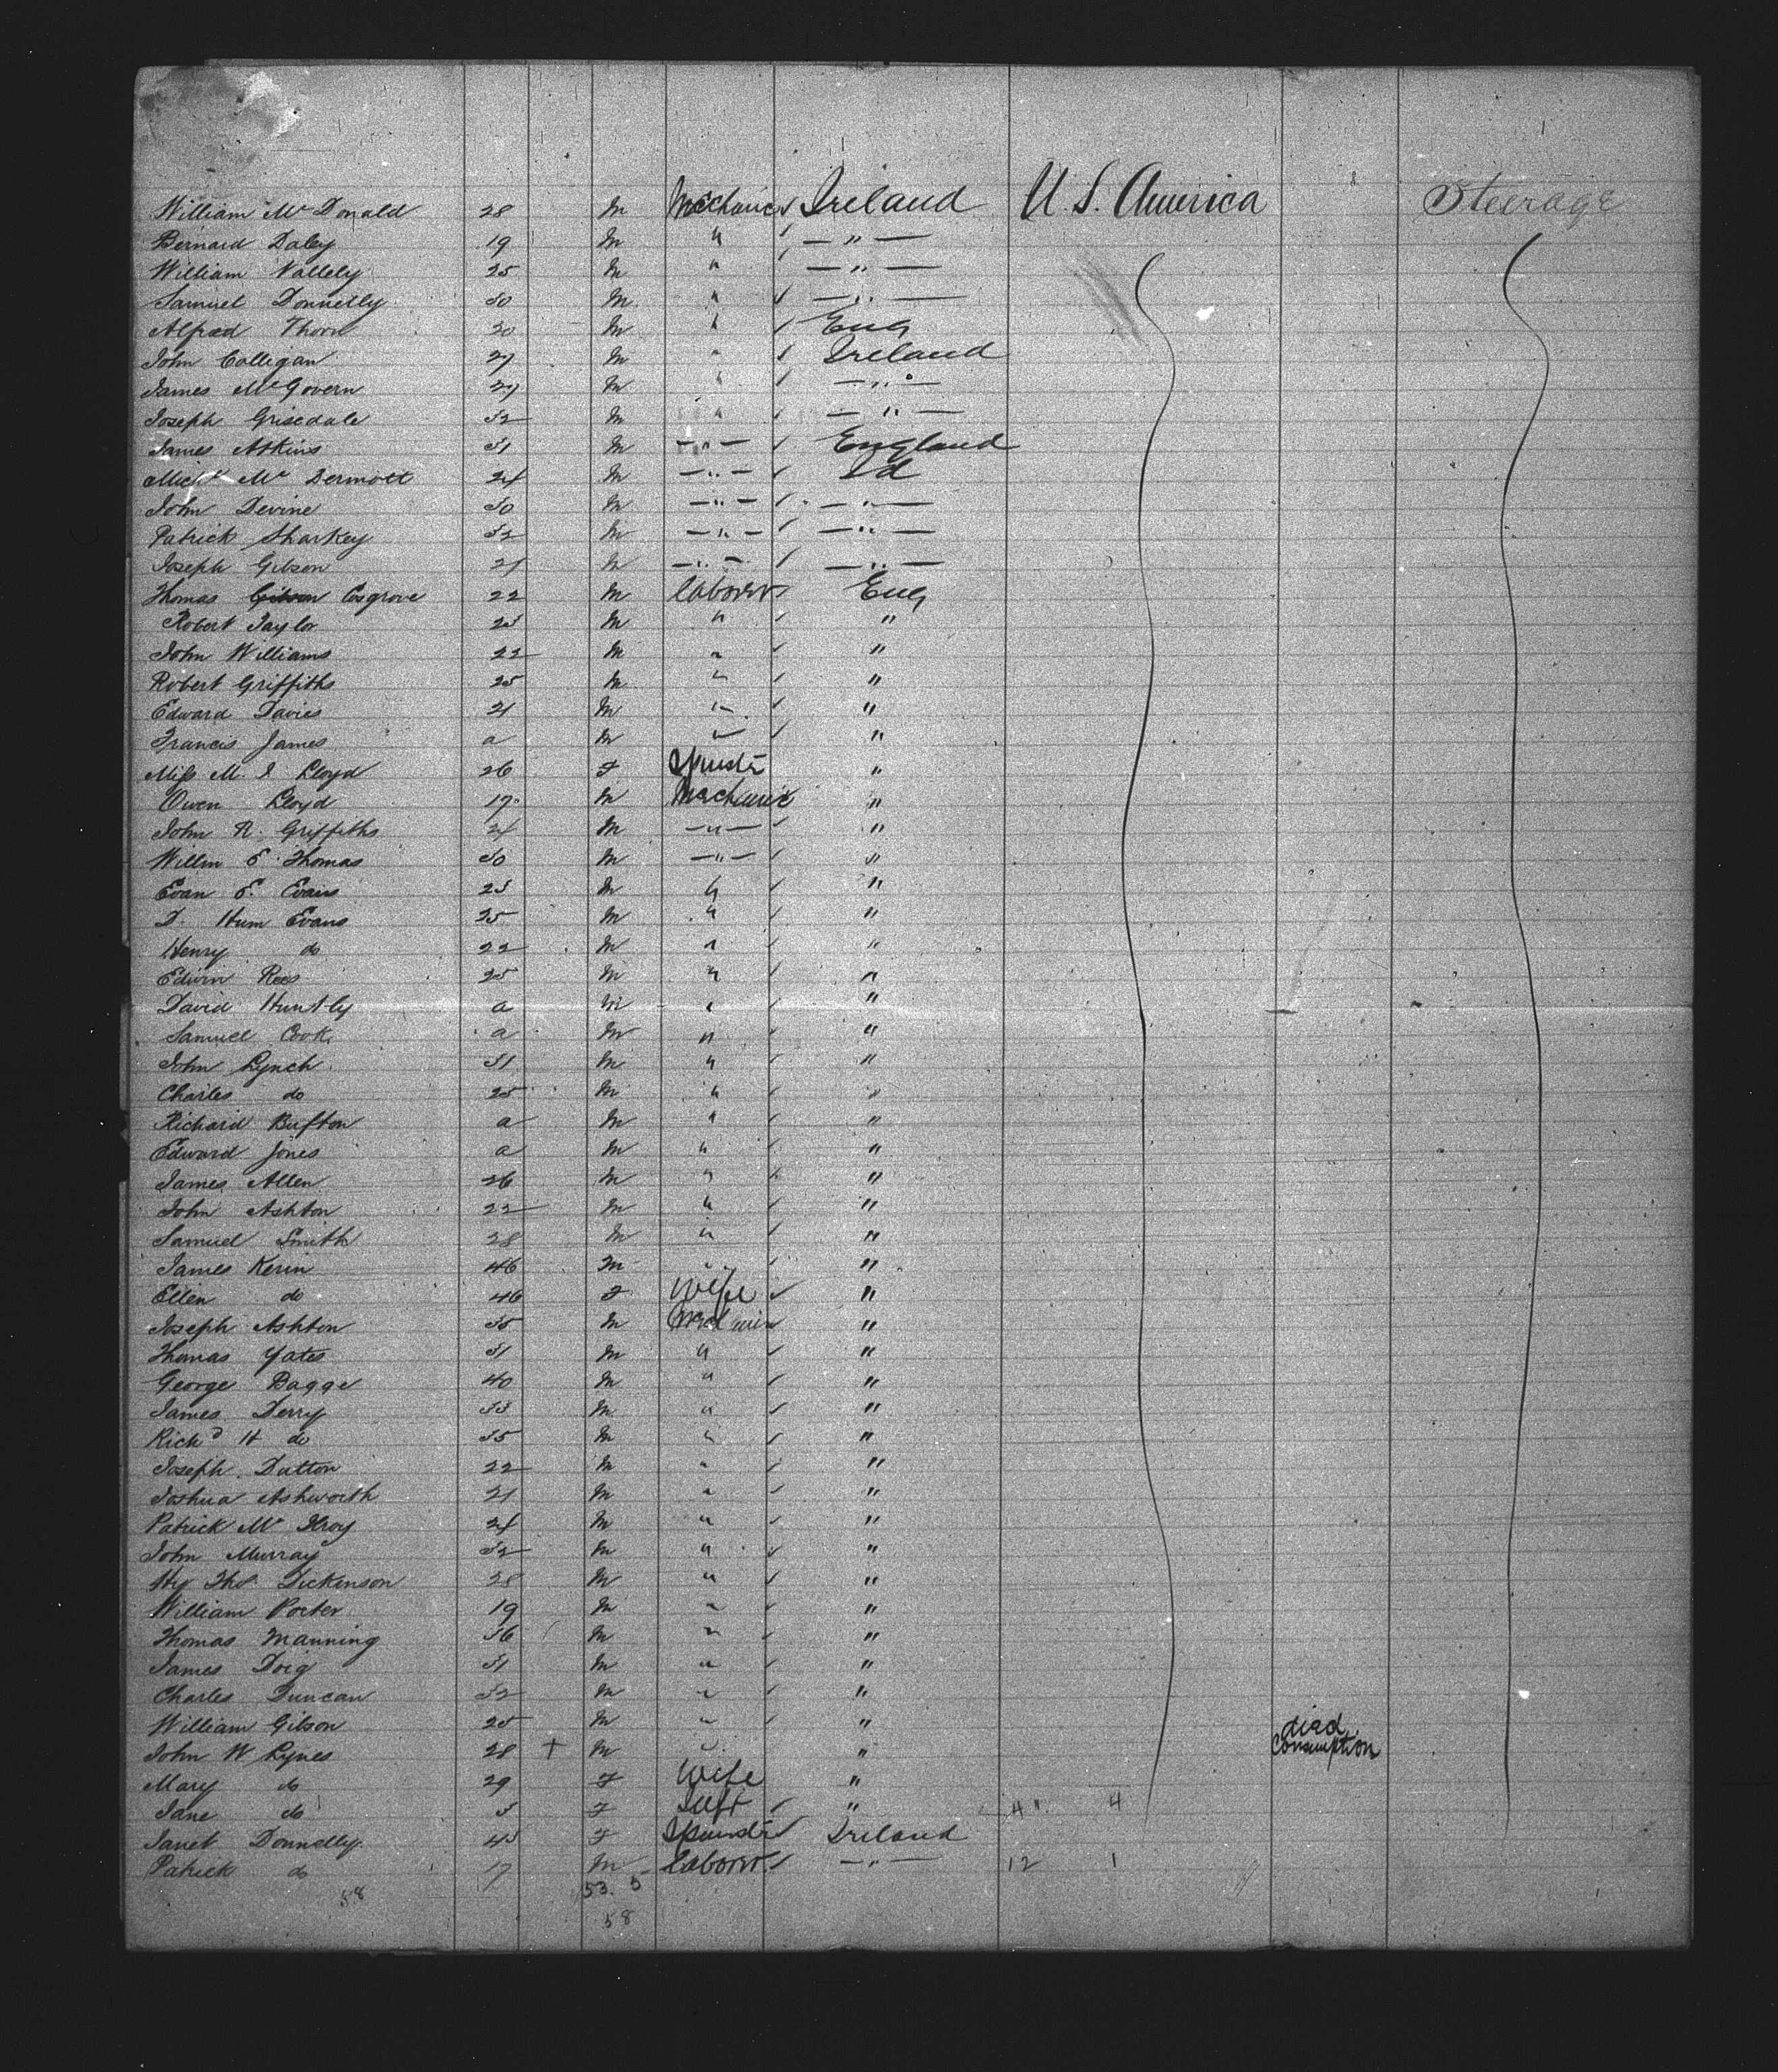 William Mc Donald 28 M Mechanic Ireland U.S. America Steerage
Bernard Daley 19 M " — " —
William Vallely 25 M " — " —
Samuel Donnelly 30 M " — " —
Alfred Thorn 20 M " Eng
John Colligan 27 M " Ireland
James McGovern 27 M " — " —
Joseph Grisedale 32 M " — " —
James Atkins 31 M — " — England
Mich Mc Dermott 24 M — " — Id
John Devine 30 M — " — — " —
Patrick Sharkey 32 M — " — — " —
Joseph Gibson 21 M — " — — " —
Thomas Gibson Cosgrove 22 M laborer Eng
Robert Taylor 23 M " "
John Williams 22 M " "
Robert Griffiths 25 M " "
Edward Davies 21 M " "
Francis James a M " "
Miss M. J. Lloyd 26 F Spinstr "
Owen Lloyd 19 M Mechanic "
John R. Griffiths 24 M — " — "
Willm E. Thomas 30 M — " — "
Evan E. Evans 23 M " "
D. Hum Evans 25 M " "
Henry do 22 M " "
Edwin Rees 25 M " "
David Huntly a M " "
Samuel Cook a M " "
John Lynch 31 M " "
Charles do 25 M " "
Richard Bufton a M " "
Edward Jones a M " "
James Allen 26 M " "
John Ashton 22 M " "
Samuel Smith 28 M " "
James Kerin 46 M " "
Ellen do 46 F Wife "
Joseph Ashton 35 M Mechanic "
Thomas Yates 31 M " "
George Bagge 40 M " "
James Derry 33 M " "
Richd H do 35 M " "
Joseph Dutton 22 M " "
Joshua Ashworth 21 M " "
Patrick Mc Ilroy 24 M " "
John Murray 32 M " "
Hy Thos Dickinson 28 M " "
William Porter 19 M " "
Thomas Manning 36 M " "
James Doig 31 M " "
Charles Duncan 32 M " "
William Gibson 25 M " "
John W Lynes 28 + M " " died Consumption
Mary do 29 F Wife "
Jane do 3 F " 4 " 4
Janet Donnelly 43 F Spinstr Ireland
Patrick do 17 M laborer — " — 12 1
58 53. 5
58